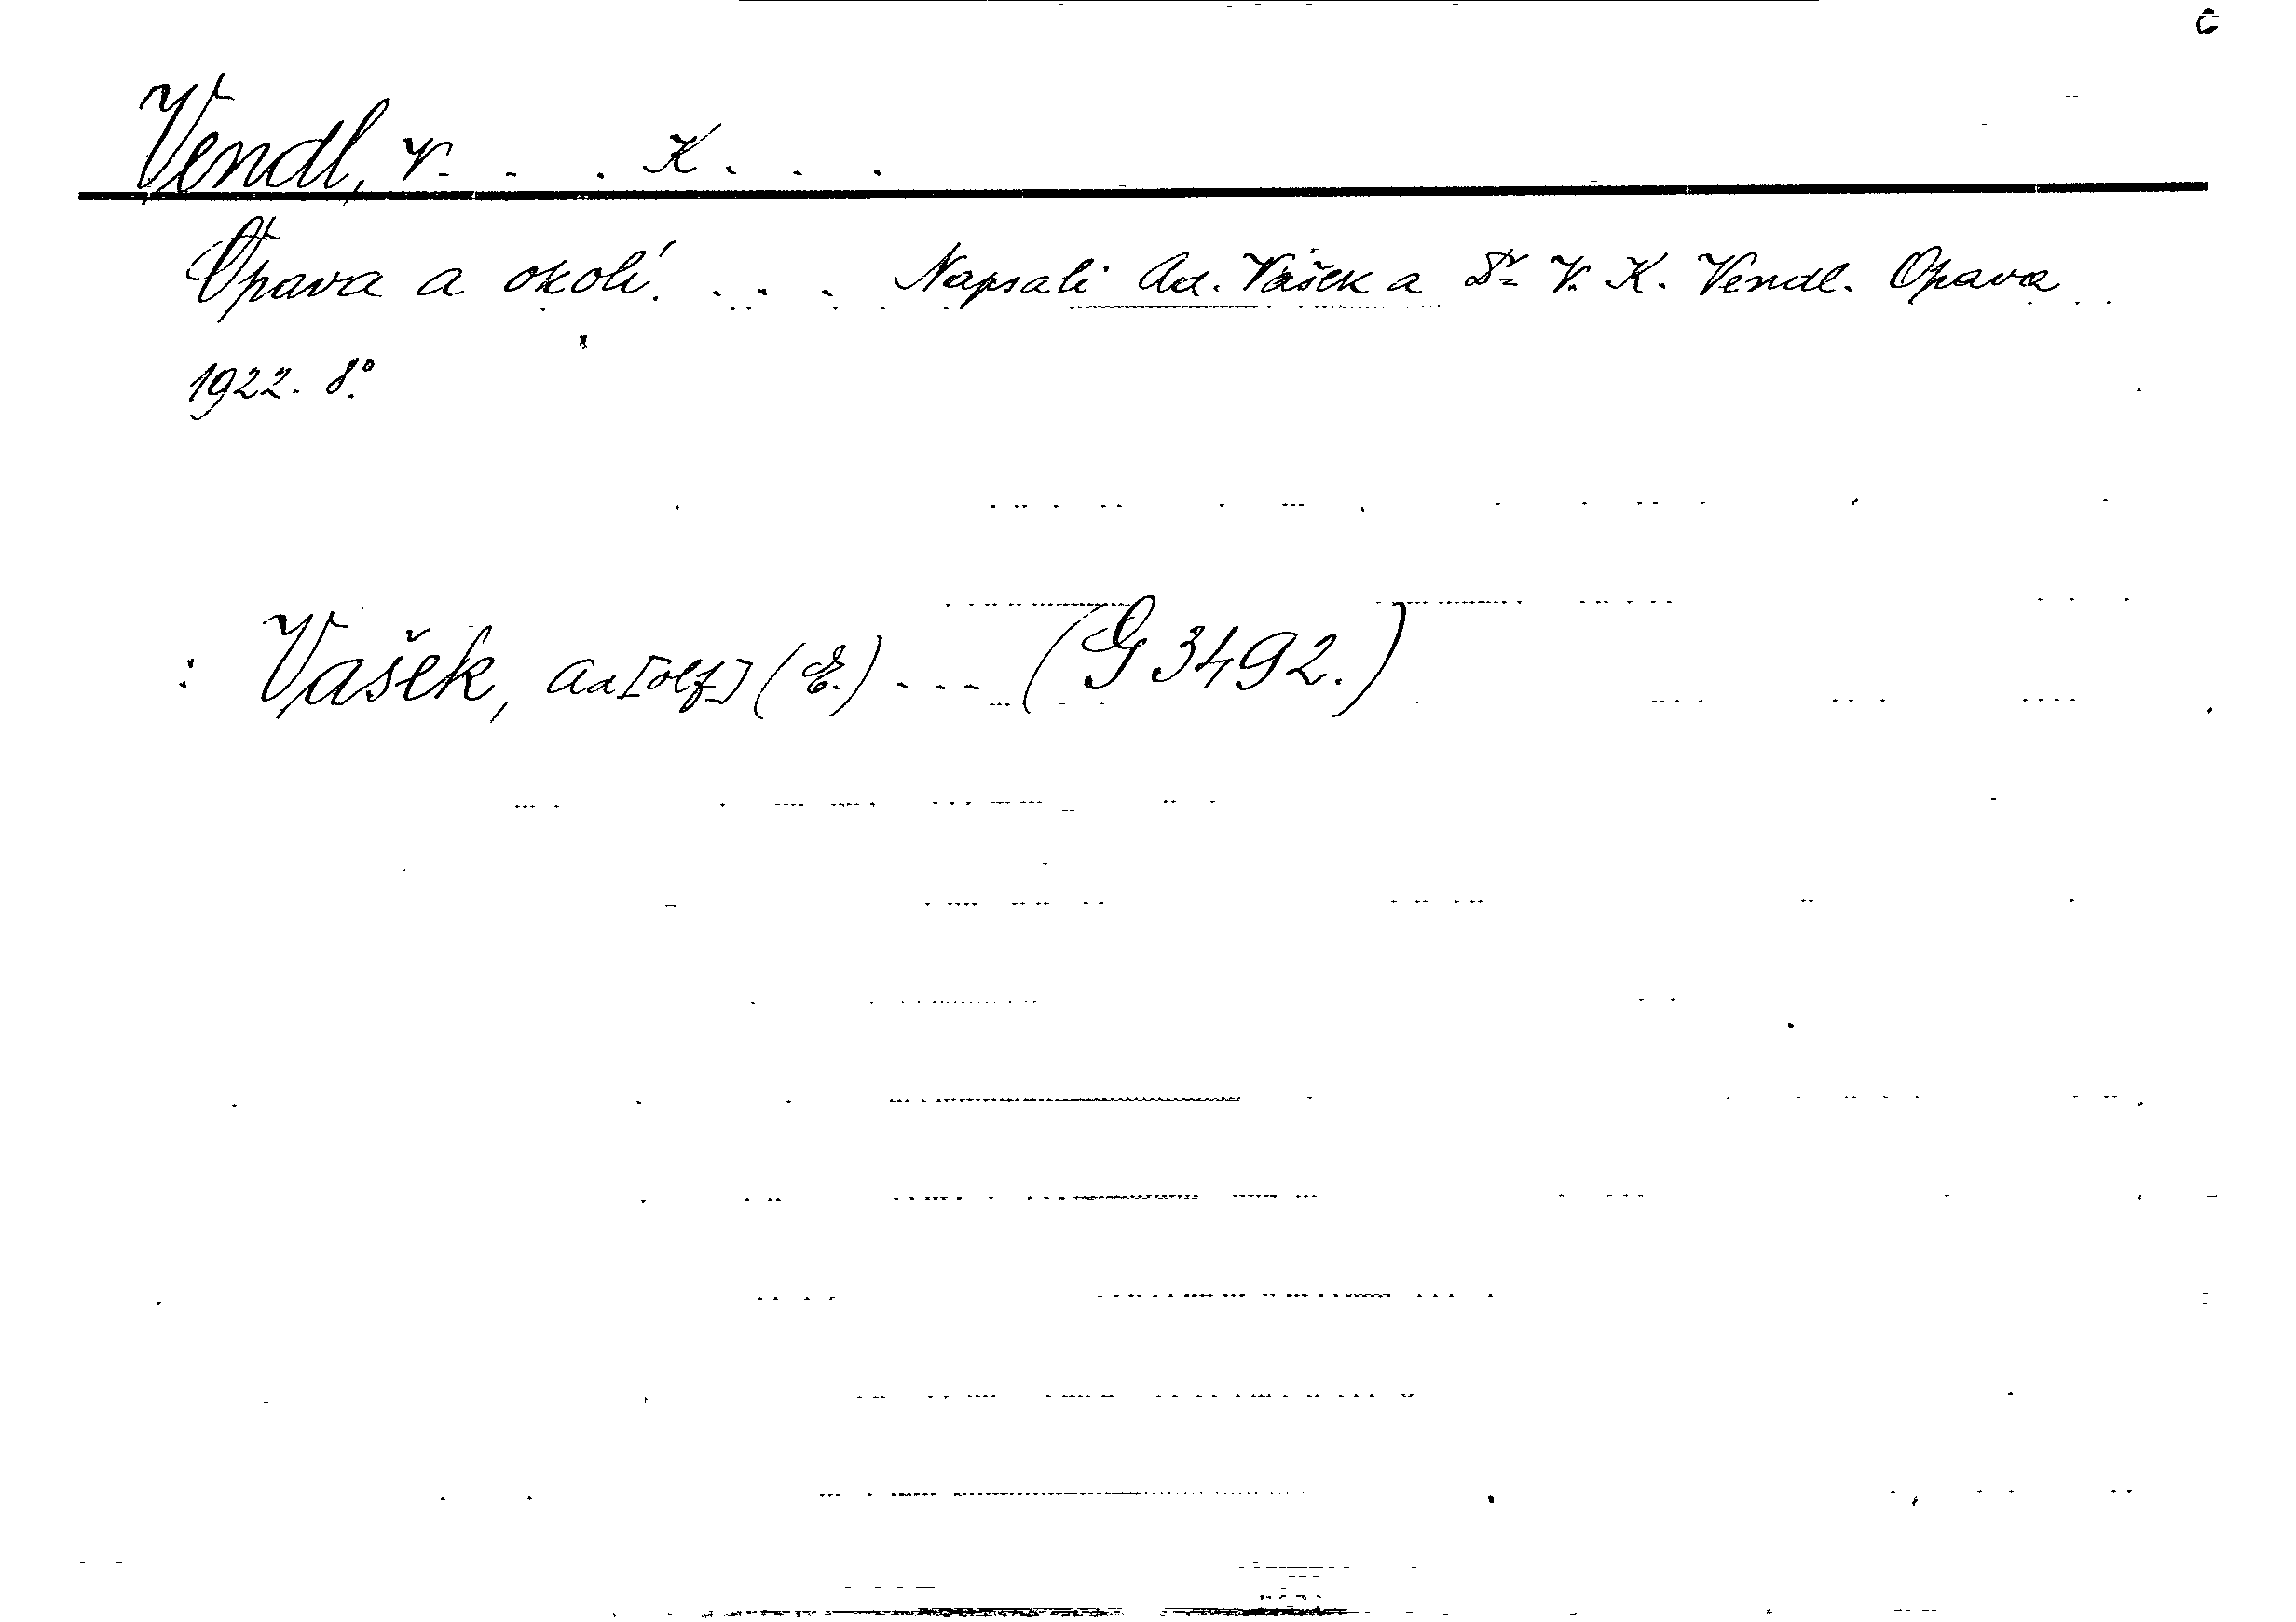 Vendl, V. . . K. . .
Opava a okolí. . . . Napsali Ad. Vašek a Dr. V. K. Vendl. Opava
1922. 8°.
: Vašek, Ad[olf] (E.) ... (G 3492.)